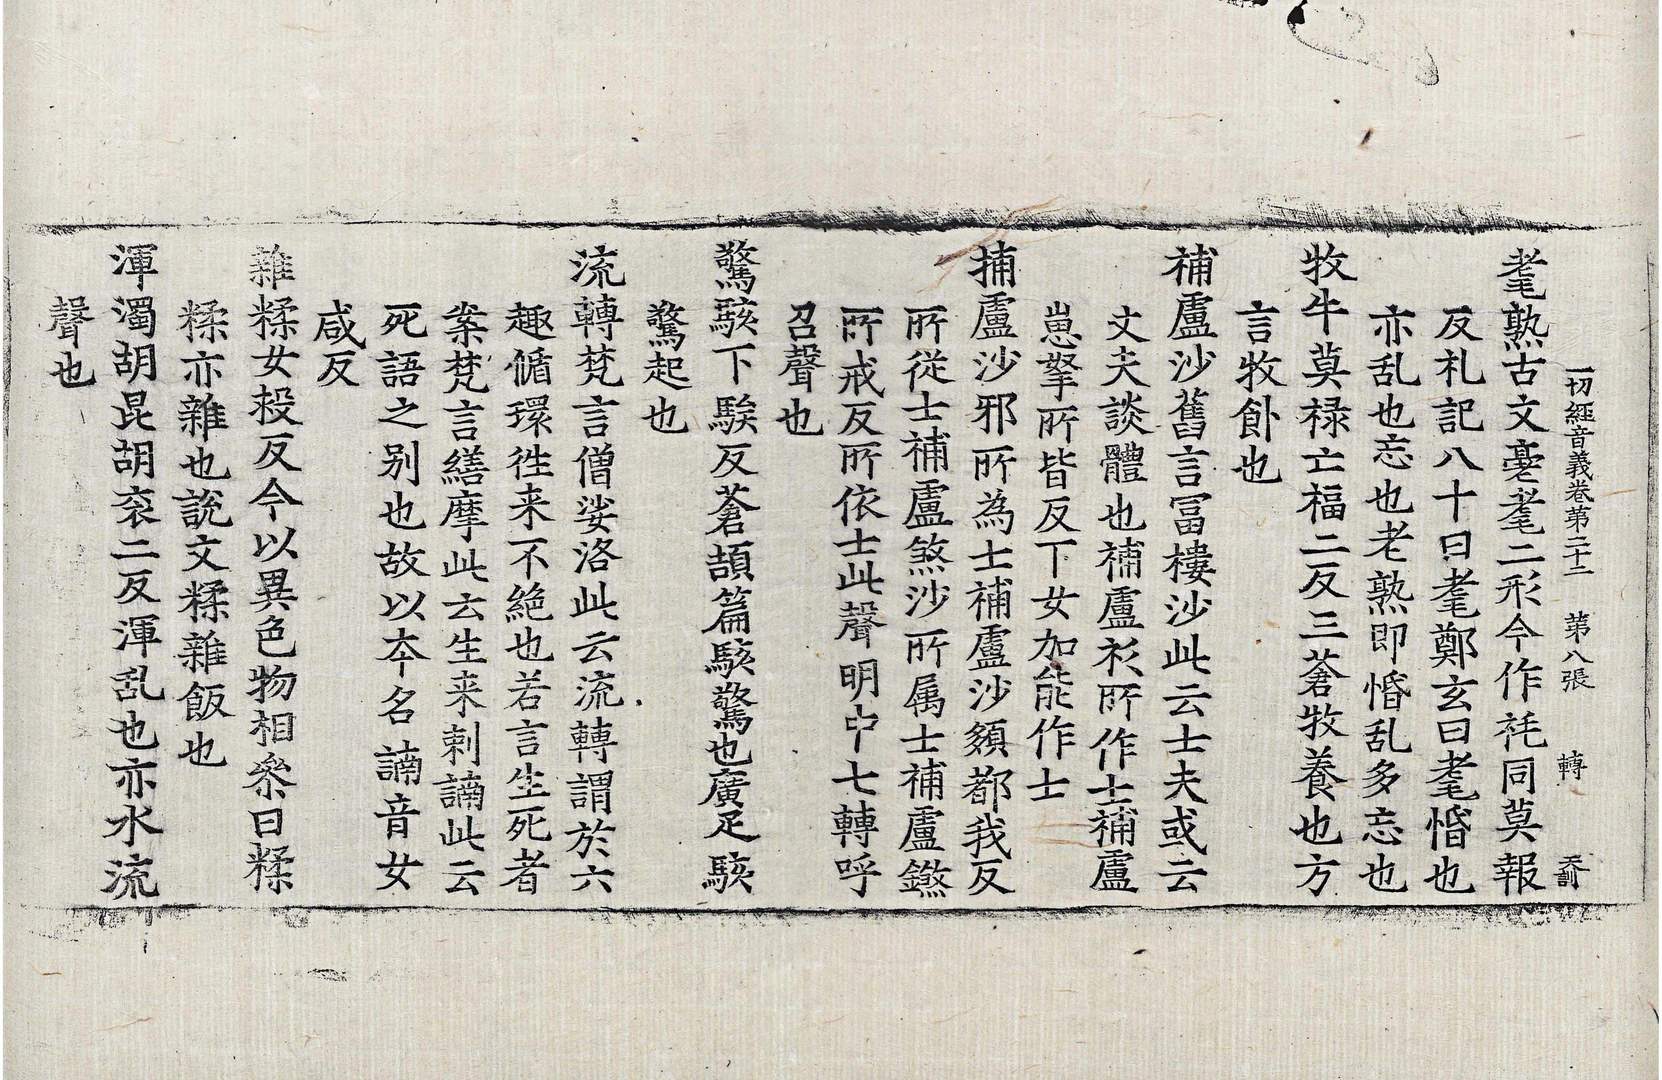 一切經音義卷第二十二 第八張 轉 天訓
耄熟古文𦽤耄二形今作秏同莫報
反札記八十曰耄鄭玄曰耄惛也
亦乱也忘也老熟即惛乱多忘也
牧牛莫禄亡福二反三蒼牧養也方
言牧飤也
補盧沙舊言冨樓沙此云士夫或云
丈夫談體也補盧衫所作士補盧
崽拏所皆反下女加能作士
捕盧沙邪所為士補盧沙頞都我反
所從士補盧煞沙所属士補盧鑠
所戒反所依士此聲明中七轉呼
召聲也
驚駭下駿反蒼頡篇駭驚也廣疋駭
驚起也
流轉梵言僧娑洛此云流轉謂於六
趣循環徃来不絶也若言生死者
案梵言繕摩此云生来剌諵此云
死語之别也故以夲名諵音女
咸反
雜糅女投反今以異色物相叅曰糅
糅亦雜也說文糅雜飯也
渾濁胡昆胡衮二反渾乱也亦水流
聲也